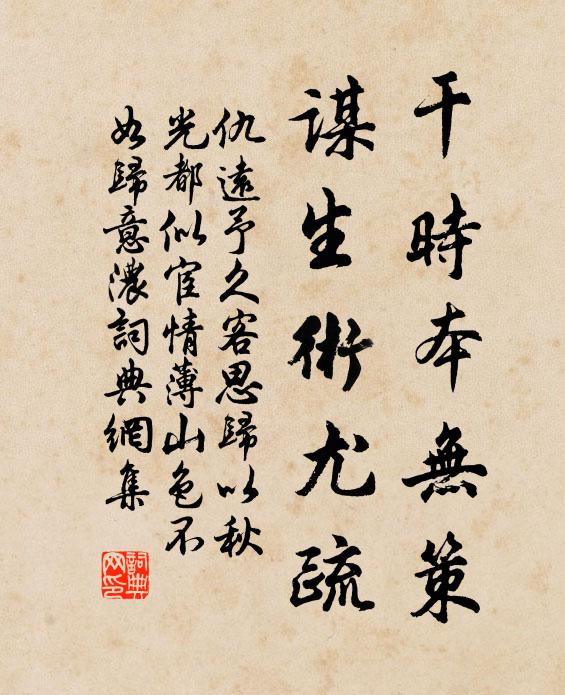 干時本無策
謀生術尤疏
仇遠予久客思歸以秋
光都似宦情薄山色不
如歸意濃詞典網集
詞典网印